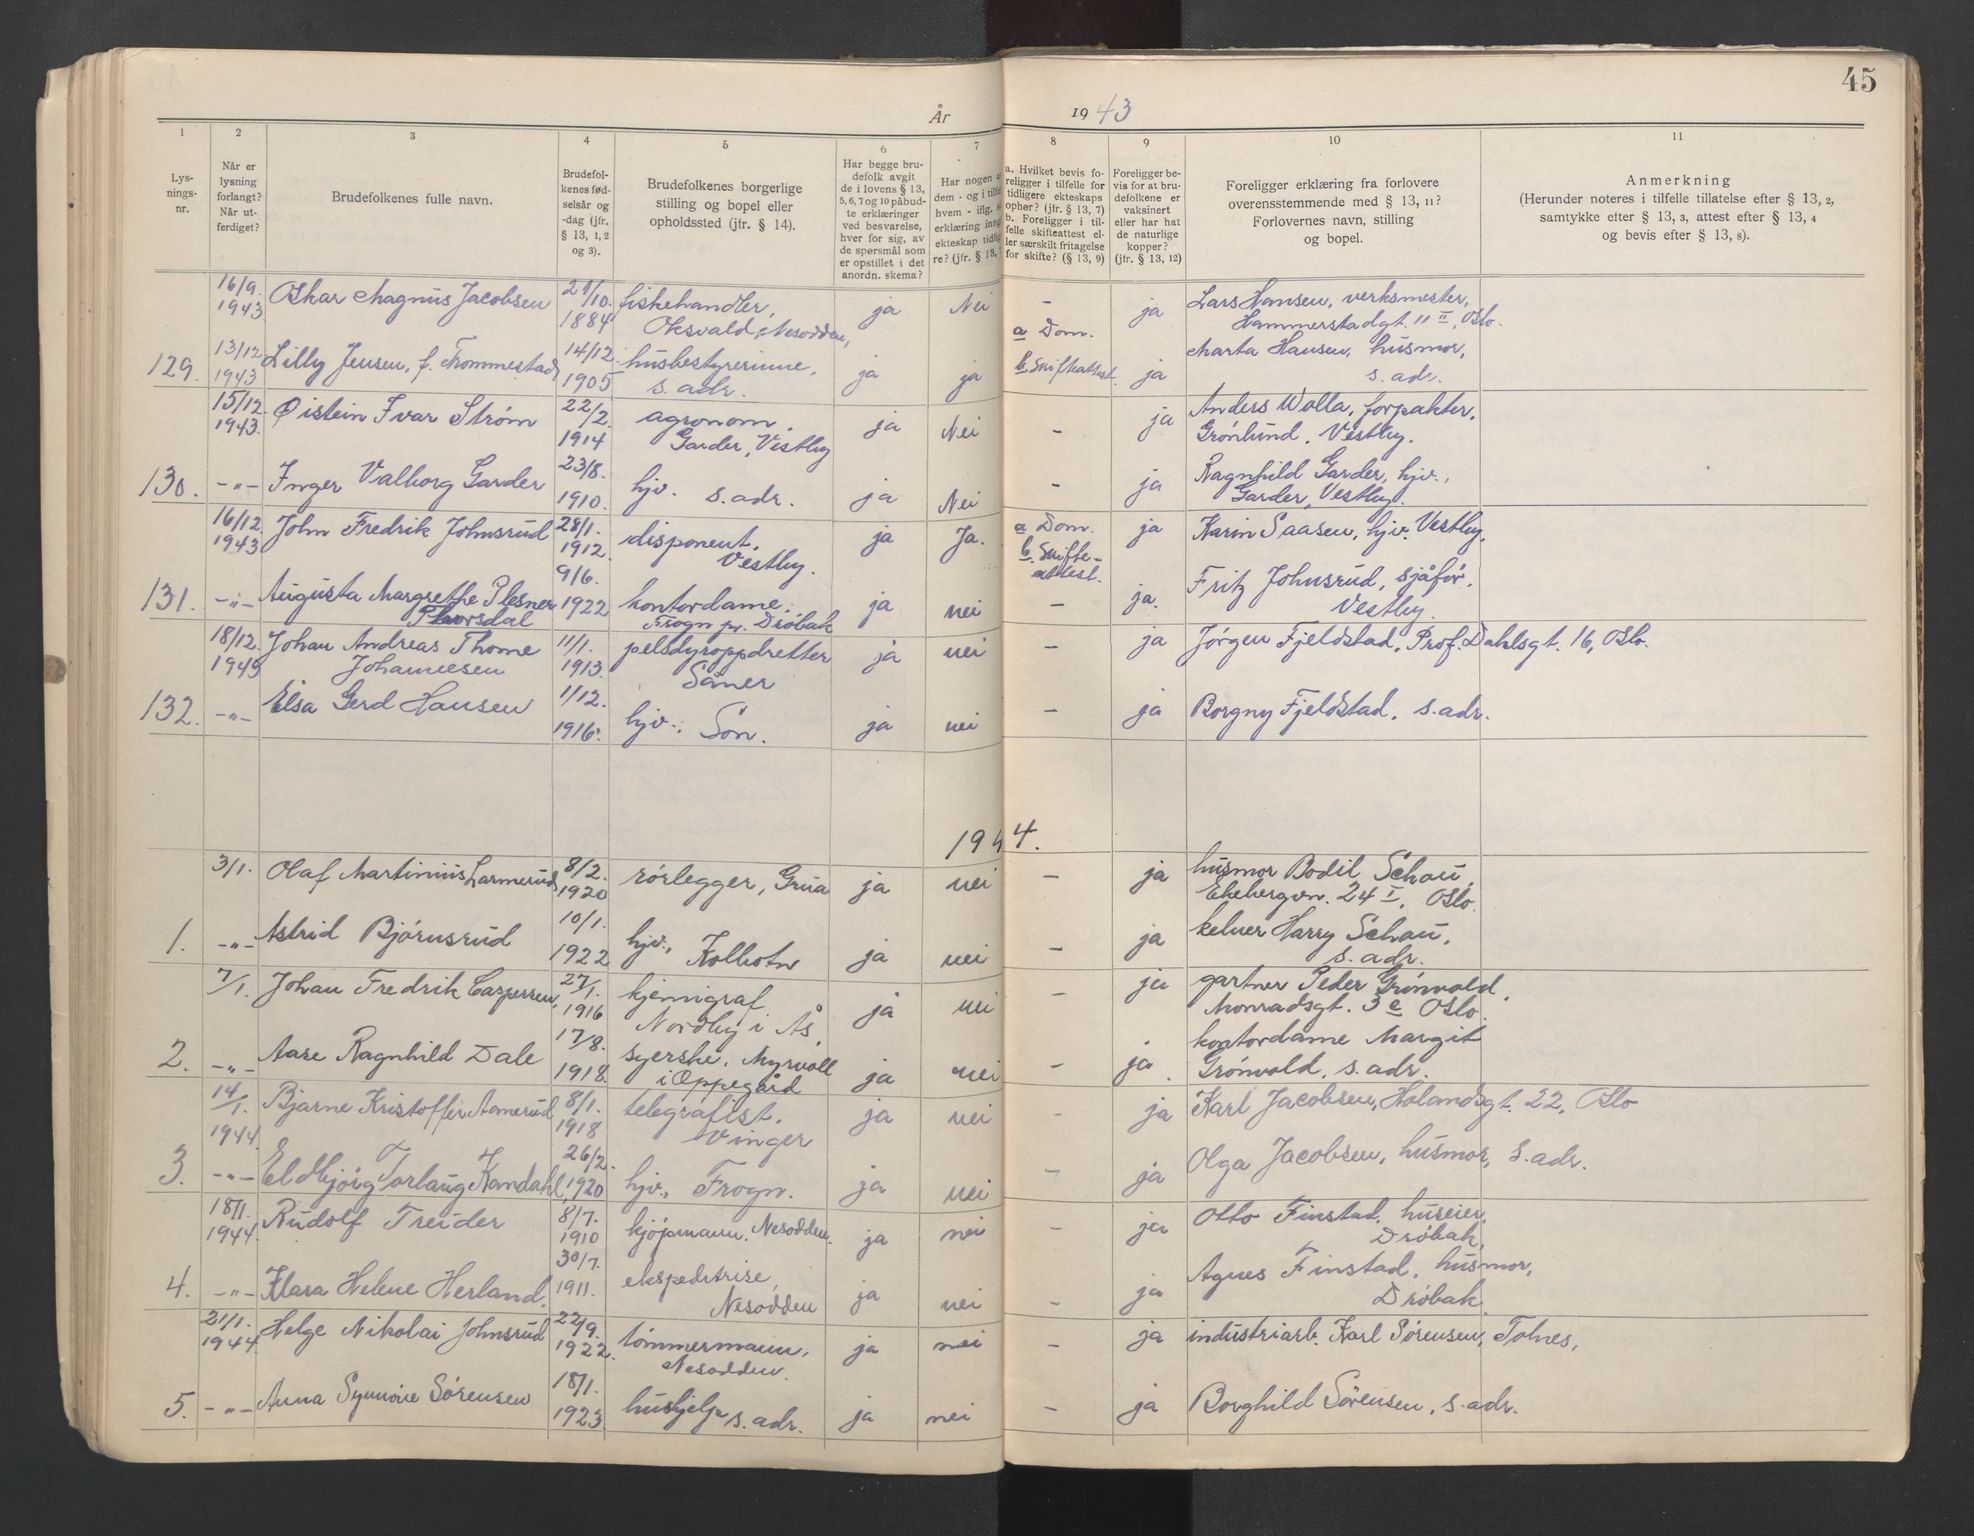 45
År 1943
1 2 3 4 5 6 7 8 9 10 11
Lysningsnr.
Når er lysning forlangt? Når utferdiget?
Brudefolkenes fulle navn.
Brudefolkenes fødselsår og -dag (jfr. § 13, 1, 2 og 3).
Brudefolkenes borgerlige stilling og bopel eller opholdssted (jfr. § 14).
Har begge brudefolk avgitt de i lovens § 13, 5, 6, 7 og 10 påbudte erklæringer ved besvarelse, hver for sig, av de spørsmål som er opstillet i det anordn. skema?
Har nogen a dem - og i tilfel hvem - iflg. s erklæring inng ekteskap tidlig re? (jfr. § 13,
a. Hvilket bevis foreligger i tilfelle for tidligere ekteskaps ophør? (jfr. § 13, 7)
b. Foreligger i tilfelle skifteattest eller særskilt fritagelse for skifte? (§ 13, 9)
Foreligger bevis for at brudefolkene er vaksinert eller har hat de naturlige kopper? (jfr. § 13, 12)
Foreligger erklæring fra forlovere overensstemmende med § 13, 11? Forlovernes navn, stilling og bopel.
Anmerkning
(Herunder noteres i tilfelle tillatelse efter § 13, 2, samtykke efter § 13, 3, attest efter § 13, 4 og bevis efter § 13, 8).
16/9. 1943 Oskar Magnus Jacobsen 21/10. 1884 fiskehandler, Oksvald, Nesodden, ja Nei – ja Lars Hansen, verksmester, Hammerstadgt. 11 II, Oslo.
129. 13/12 1943 Lilly Jensen, f. Trommestad 14/12. 1905 husbestyrerinne, s. adr. ja ja a Dom. b. Skifteattest. ja Marta Hansen, husmor, s. adr.
15/12 1943. Øistein Ivar Strøm 22/2. 1914 agronom, Garder, Vestby ja Nei – ja Anders Wolla, forpakter, Grønlund, Vestby.
130. -"- Inger Valborg Garder 23/8. 1910. hjv. s. adr. ja Nei – ja Ragnhild Garder, hjv., Garder, Vestby.
16/12 1943 John Fredrik Johnsrud 28/1. 1912. disponent, Vestby. ja Ja. a Dom. b. Skifteattest. ja Karin Saasen, hjv. Vestby,
131. -"- Augusta Margrethe Plesner Thorsdal 9/6. 1922 kontordame, Frogn pr. Drøbak ja nei – ja. Fritz Johnsrud, sjåfør, Vestby.
18/12. 1943 Johan Andreas Thome Johannesen 11/1. 1913. pelsdyroppdretter Såner ja nei – ja Jørgen Fjeldstad, Prof. Dahlsgt. 16, Oslo.
132. -"- Elsa Gerd Hansen 1/12. 1916. hjv., Son. ja nei – ja Borgny Fjeldstad, s. adr.
1944.
3/1. Olaf Martinius Larmerud 8/2. 1920 rørlegger, Grua ja nei – ja husmor Bodil Schau, Ekebergvn. 24 I, Oslo.
1. -"- Astrid Bjørnsrud 10/1. 1922 hjv., Kolbotn ja nei – ja kelner Harry Schau, s. adr.
7/1. Johan Fredrik Caspersen, 27/1. 1916 kjemigraf Nordby i Ås ja nei – ja gartner Peder Grønvold, Monradsgt. 3 e Oslo.
2. -"- Aase Ragnhild Dale 17/8. 1918. syerske, Myrvoll i Oppegård ja nei – ja. kontordame Margit Grønvold, s. adr.
14/1. 1944. Bjarne Kristoffer Aamerud, 8/1. 1918 telegrafist, Vinger ja nei ja Karl Jacobsen, Holandsgt. 22, Oslo
3. -"- Eldbjørg Torlaug Kandahl, 26/2. 1920 hjv., Frogn. ja nei – ja Olga Jacobsen, husmor, s. adr.
18/1. 1944. Rudolf Treider 8/7. 1910 kjøpmann, Nesodden. ja nei – ja Otto Finstad, huseier, Drøbak,
4. -"- Klara Helene Herland. 30/7. 1911. ekspeditrise, Nesodden ja nei – ja Agnes Finstad, husmor, Drøbak.
21/1. 1944. Helge Nikolai Johnsrud 22/9. 1922. tømmermann, Nesodden. ja nei – ja industriarb. Karl Sørensen, Tofnes,
5. -"- Anna Synnøve Sørensen 18/1. 1923. hushjelp s. adr. ja nei – ja Borghild Sørensen, s. adr.